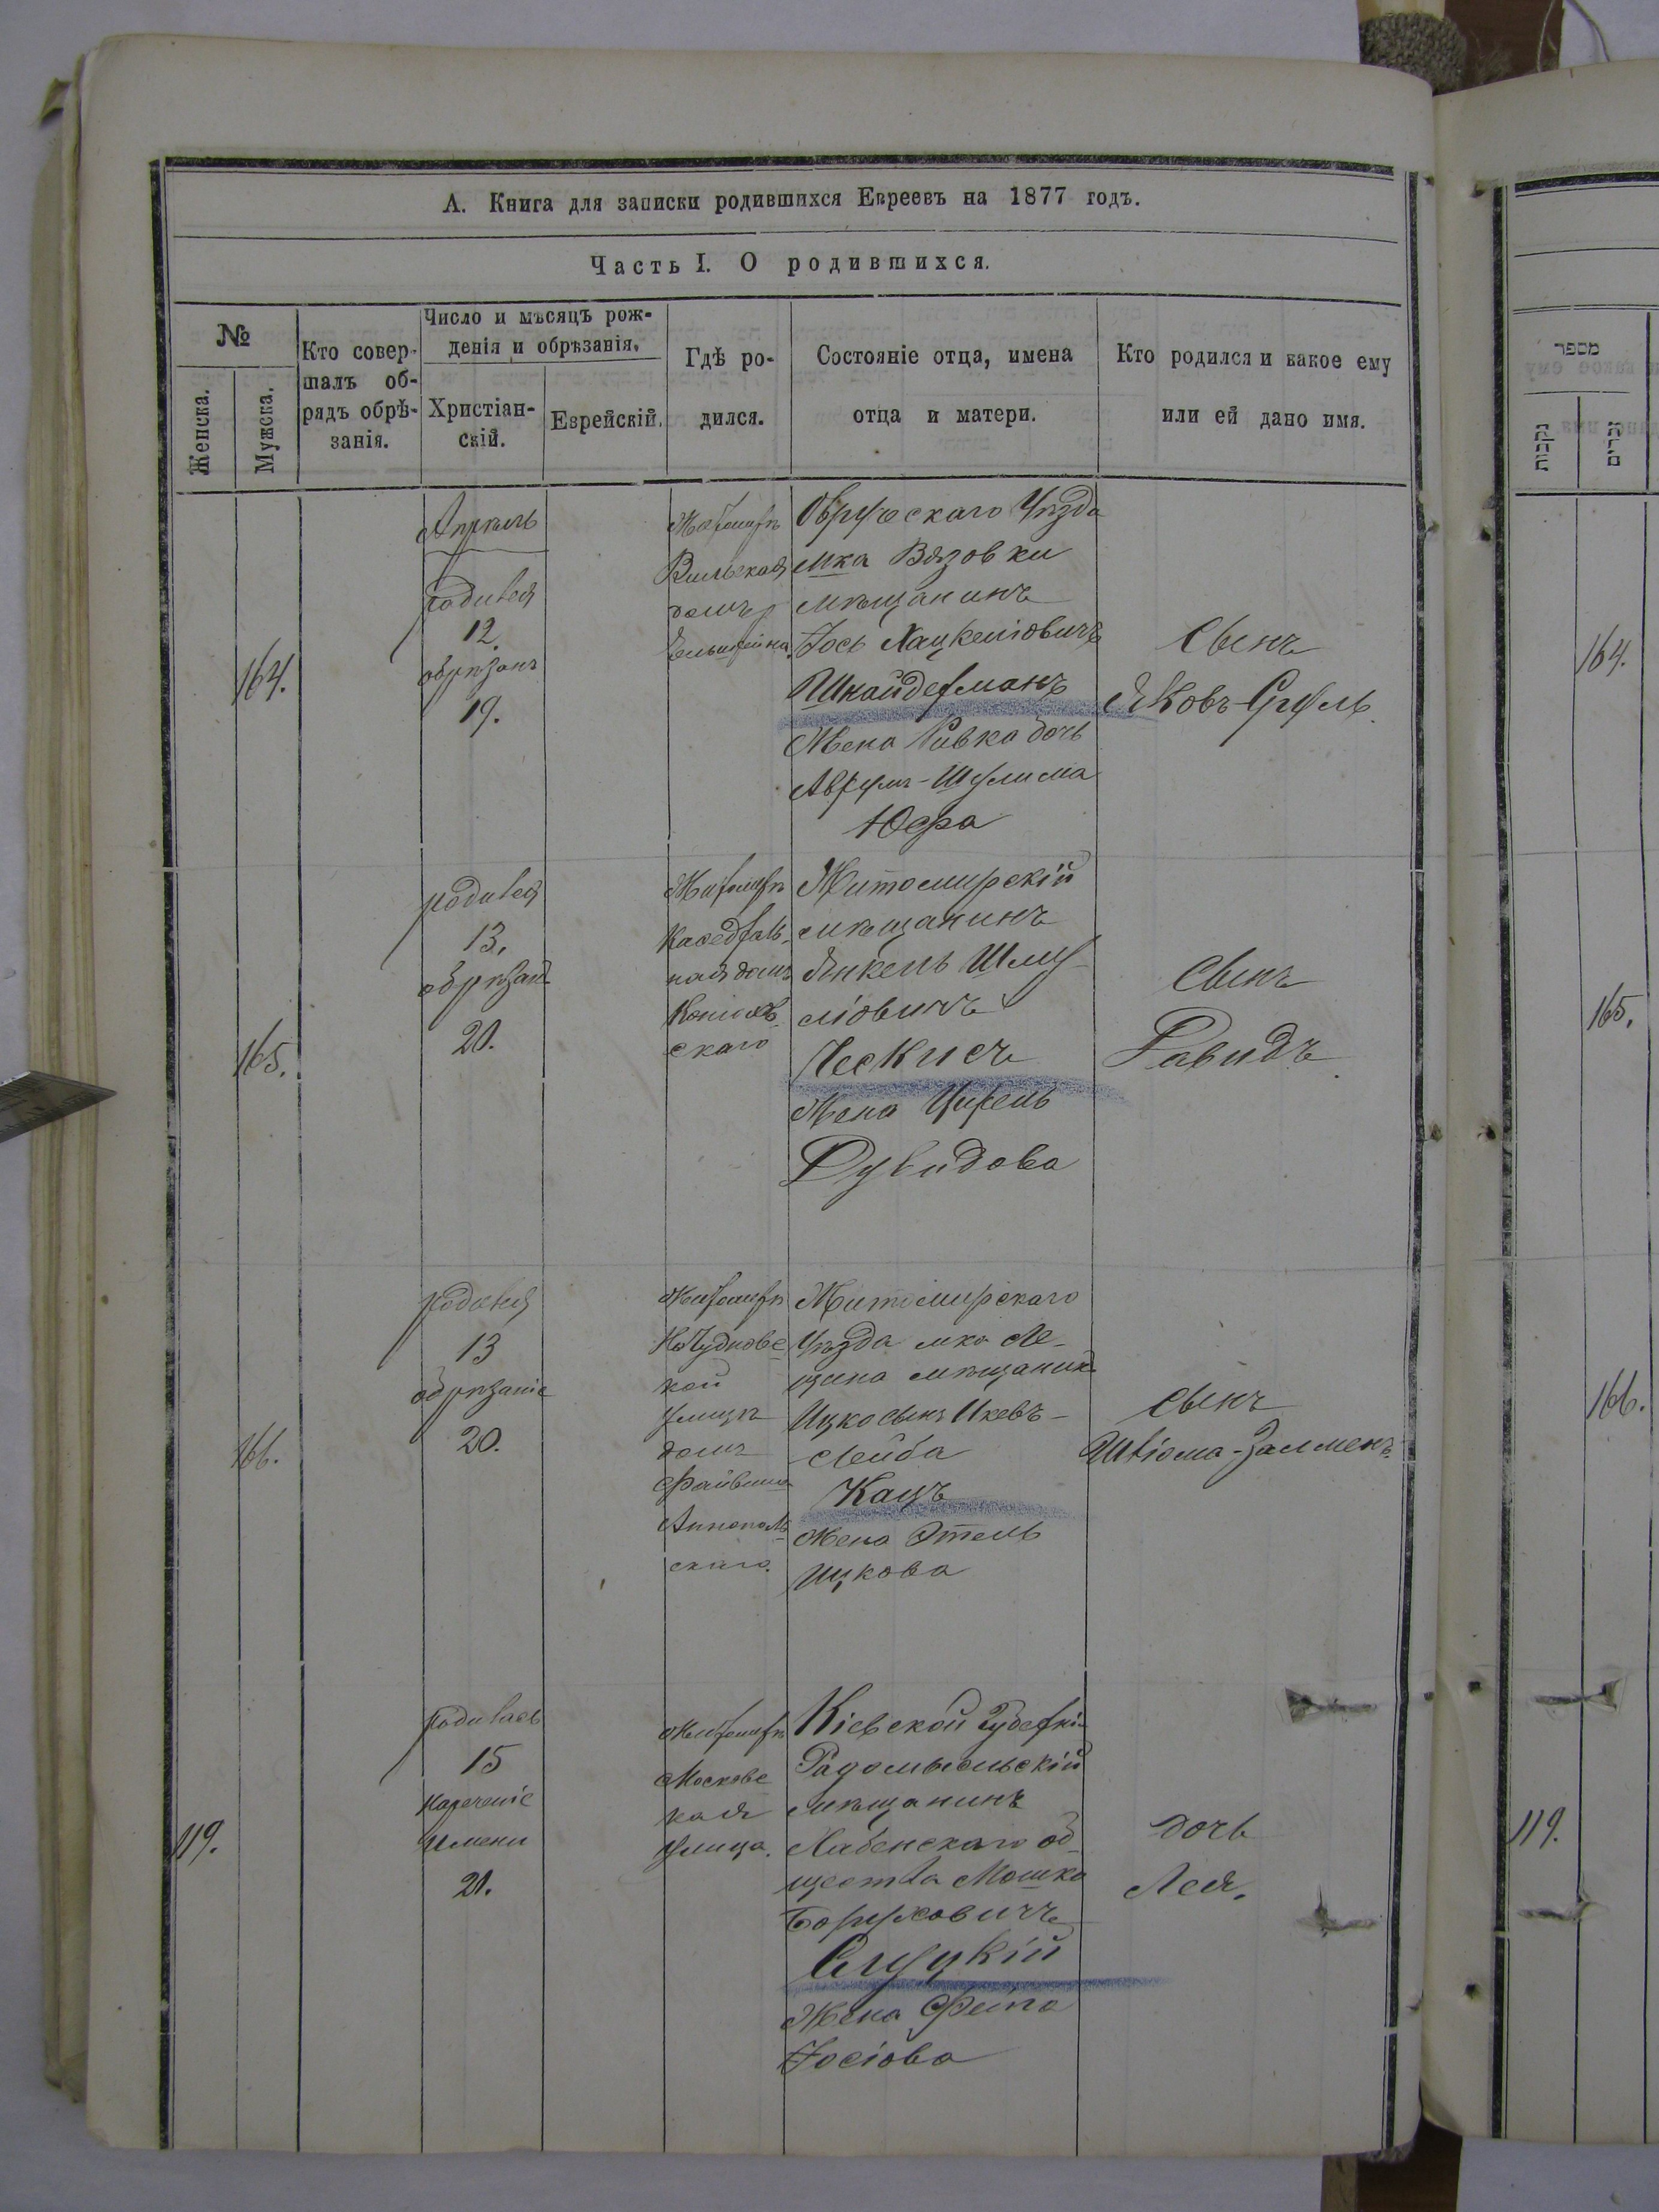 А. Книга для записки родившихся Евреевъ на 1877 годъ.
Часть I. О родившихся.
№
Женска.
Мужска.
Кто совер-
шалъ об-
рядъ обрѣ-
занія.
Число и мѣсяцъ рож-
денія и обрѣзанія.
Христіан-
скій.
Еврейскій.
Гдѣ ро-
дился.
Состояніе отца, имена
отца и матери.
Кто родился и какое ему
или ей дано имя.
164.
Апрѣль
родился
12.
обрѣзанъ
19.
Житомиръ
Вильская
домъ
Овручскаго Уѣзда
мка Вязовки
мѣщанинъ
Іось Хацкеліовичъ
Шнайдерманъ
Жена Ривка дочь
Аврумъ-Шулима
Юфа
Сынъ
Яковъ-Сруль
165.
родился
13.
обрѣзанъ
20.
Житомиръ
Каѳедраль-
ная домъ
скаго
Житомирскій
мѣщанинъ
Янкель Шму-
ліовичъ
Ческисъ
Жена Цирель
Дувидова
Сынъ
Давидъ
166.
родился
13
обрѣзаніе
20.
Житомиръ
НЧудновс
кой
улицѣ
домъ
Файвиша
Аннополь
скаго.
Житомирскаго
Уѣзда мка Ле-
щина мѣщанинъ
Ицко сынъ Икевъ-
Лейба
Кацъ
Жена Этель
Ицкова
сынъ
Шліома-Залменъ
119.
родилась
15
нареченіе
имени
21.
Житомиръ
Московс
кая
улица.
Кіевской Губерніи
Радомысльскій
мѣщанинъ
Хабенскаго об-
щества Мошко
Боруховичъ
Слуцкій
Жена Фейга
Іосіова
дочь
Лея.
מספר
נקבות
זכרים
164.
165.
166.
119.